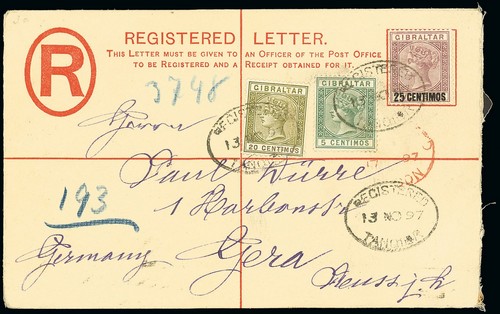 REGISTERED LETTER.
THIS LETTER MUST BE GIVEN TO AN OFFICER OF THE POST OFFICE
TO BE REGISTERED AND A RECEIPT OBTAINED FOR IT.
R
GIBRALTAR
25 CENTIMOS
3748
GIBRALTAR
20 CENTIMOS
GIBRALTAR
5 CENTIMOS
REGISTERED
13 NO 97
REGISTERED
13 NO
TANGIER
Herrn
Paul Dürre
193
1
Germany Gera
Reuss j. L.
REGISTERED
13 NO 97
TANGIER